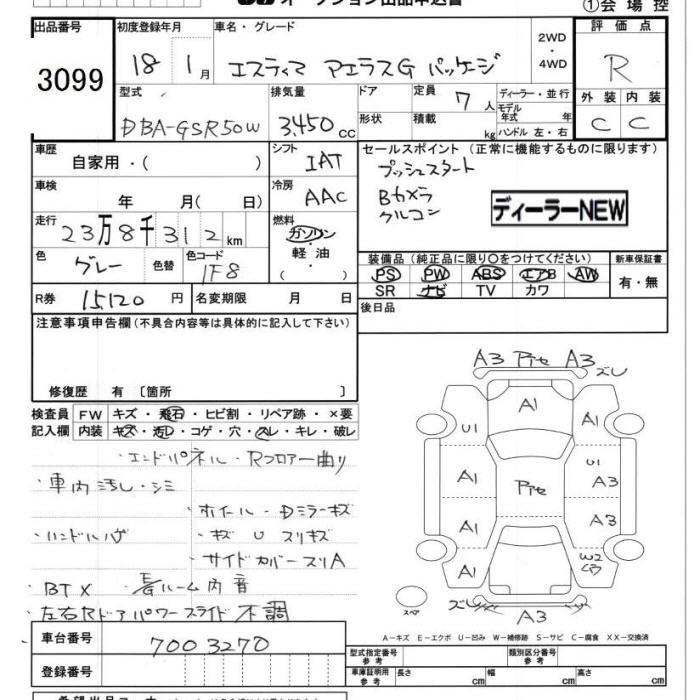 オークション出品申込書
①会場控
出品番号 初度登録年月 車名・グレード 評価点
3099 18 1月 エスティマ アエラスG パッケージ 2WD・4WD R
型式 排気量 ドア 定員 7人 ディーラー・並行 外装 内装
DBA-GSR50W 3,450cc 形状 積載 kg モデル年式 年 ハンドル 左・右 C C
車歴 自家用・( ) シフト IAT セールスポイント (正常に機能するものに限ります)
プッシュスタート
車検 年 月( 日) 冷房 AAC Bカメラ
クルコン ディーラーNEW
走行 23万8千312km 燃料 ガソリン・軽油・( )
色 グレー 色替 色コード 1F8 装備品 (純正品に限り○をつけてください) 新車保証書
PS PW ABS エアB AW 有・無
SR ナビ TV カワ
R券 15120円 名変期限 月 日 後日品
注意事項申告欄(不具合内容等は具体的に記入して下さい)
修復歴 有〔箇所 〕
検査員記入欄 FW キズ・飛石・ヒビ割・リペア跡・×要
内装 キズ・汚レ・コゲ・穴・スレ・キレ・破レ
・エンドパネル・Rフロアー曲り
・車内汚し・シミ
・ホイール・Dミラーキズ
・ハンドルハゲ ・キズ U スリキズ
・サイドカバースリA
・BTX ・長ルーム内音
・左右Rドアパワースライド不調
A3 アセ A3 ズレ
A1
U1 U1
A1 アセ A3
A1 A3
A1 W2
スペア ズレ A3
A-キズ E-エクボ U-凹み W-補修跡 S-サビ C-腐食 XX-交換済
車台番号 7003270 型式指定番号 参考 類別区分番号 参考
登録番号 車庫証明用 参考 長さ cm 幅 cm 高さ cm